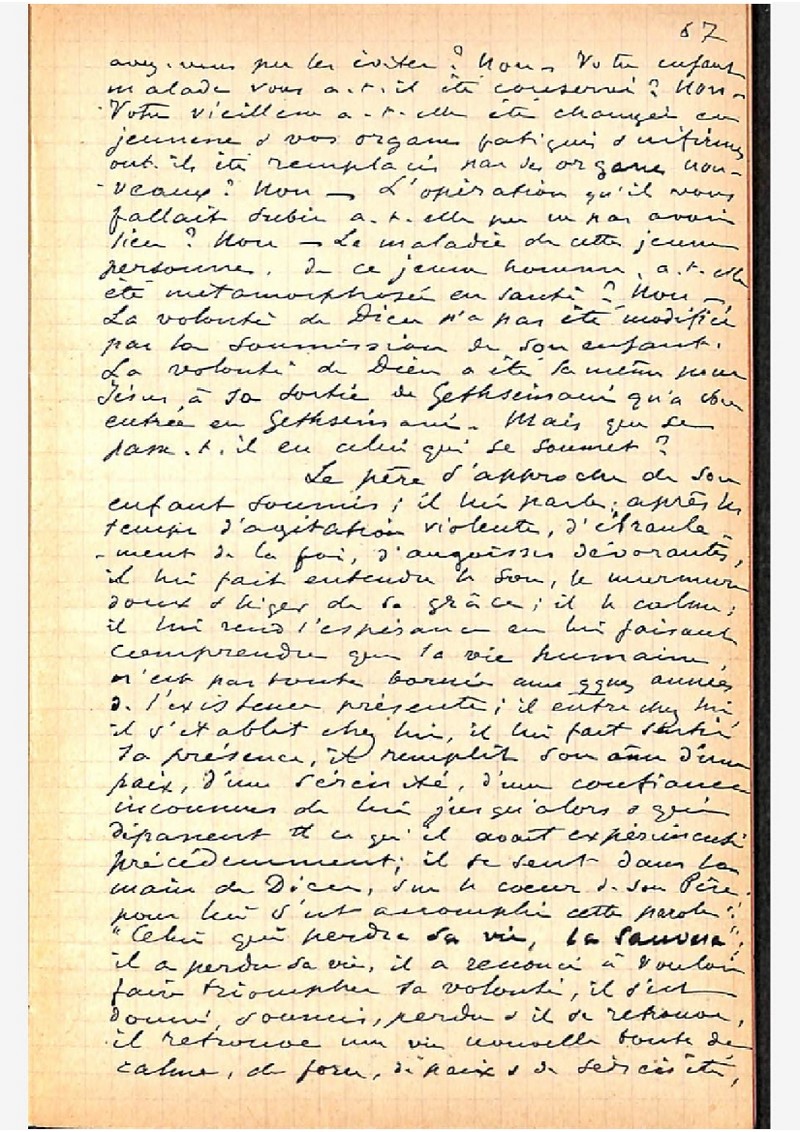 67
avez-vous pu les éviter ? Non – Votre enfant
malade vous a-t-il été conservé ? Non –
Votre vieillesse a-t-elle été changée en
jeunesse & vos organes fatigués & infirmes
ont-ils été remplacés par des organes nou-
-veaux ? Non – L'opération qu'il vous
fallait subir a-t-elle pu ne pas avoir
lieu ? Non – La maladie de cette jeune
personne, de ce jeune homme, a-t-elle
été métamorphosée en santé ? Non –
La volonté de Dieu n'a pas été modifiée
par la soumission de son enfant.
La volonté de Dieu a été la même pour
Jésus à sa sortie de Gethsémané qu'à son
entrée en Gethsémané. Mais que se
passe-t-il en celui qui se soumet ?
Le père s'approche de son
enfant soumis ; il lui parle ; après les
temps d'agitation violente, d'ébranle-
-ment de la foi, d'angoisses dévorantes,
il lui fait entendre le son, le murmure
doux & léger de sa grâce ; il le calme ;
il lui rend l'espérance en lui faisant
comprendre que la vie humaine
n'est pas toute bornée aux qques années
de l'existence présente ; il entre chez lui
il s'établit chez lui, il lui fait sentir
sa présence, il remplit son âme d'une
paix, d'une sérénité, d'une confiance
inconnues de lui jusqu'alors & qui
dépassent tt ce qu'il avait expérimenté
précédemment ; il se sent dans la
main de Dieu, sur le coeur de son Père.
pour lui s'est accomplie cette parole :
"Celui qui perdra sa vie, la sauvera" ;
il a perdu sa vie, il a renoncé à vouloir
faire triompher sa volonté, il s'est
donné, soumis, perdu & il se retrouve,
il retrouve une vie nouvelle toute de
calme, de force, de paix & de sérénité,